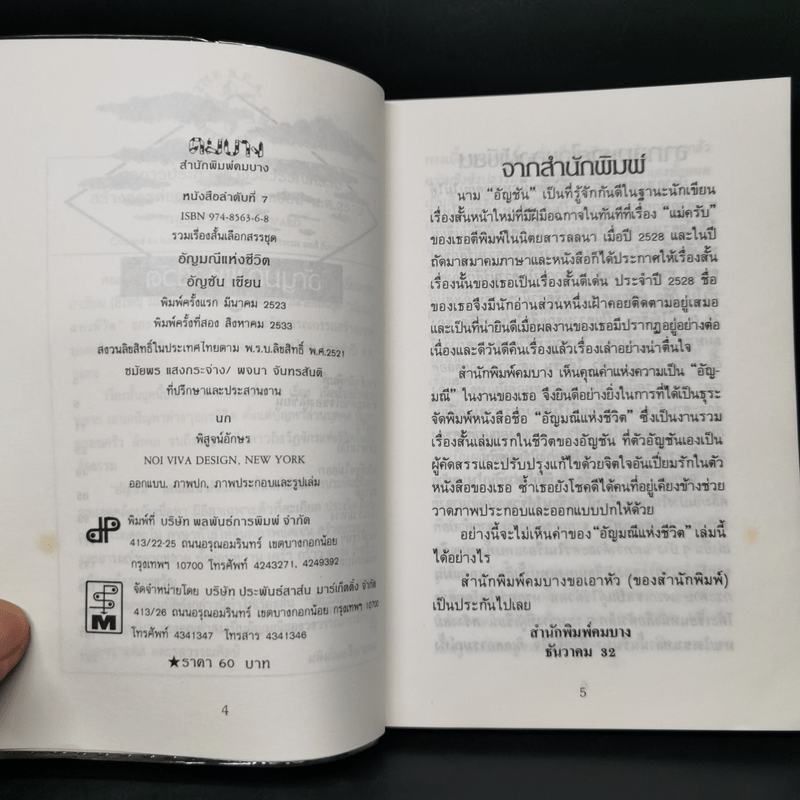 คมบาง
สำนักพิมพ์คมบาง
หนังสือลำดับที่ 7
ISBN 974-8563-6-8
รวมเรื่องสั้นเลือกสรรชุด
อัญมณีแห่งชีวิต
อัญชัน เขียน
พิมพ์ครั้งแรก มีนาคม 2523
พิมพ์ครั้งที่สอง สิงหาคม 2533
สงวนลิขสิทธิ์ในประเทศไทยตาม พ.ร.บ.ลิขสิทธิ์ พ.ศ.2521
ชมัยพร แสงกระจ่าง/ พจนา จันทรสันติ
ที่ปรึกษาและประสานงาน
นก
พิสูจน์อักษร
NOI VIVA DESIGN, NEW YORK
ออกแบบ. ภาพปก, ภาพประกอบและรูปเล่ม
dp
พิมพ์ที่ บริษัท พลพันธ์การพิมพ์ จำกัด
413/22-25 ถนนอรุณอมรินทร์ เขตบางกอกน้อย
กรุงเทพฯ 10700 โทรศัพท์ 4243271, 4249392
M
จัดจำหน่ายโดย บริษัท ประพันธ์สาส์น มาร์เก็ตติ้ง จำกัด
413/26 ถนนอรุณอมรินทร์ เขตบางกอกน้อย กรุงเทพฯ 10700
โทรศัพท์ 4341347 โทรสาร 4341346
★ราคา 60 บาท
4
จากสำนักพิมพ์
นาม “อัญชัน” เป็นที่รู้จักกันดีในฐานะนักเขียน
เรื่องสั้นหน้าใหม่ที่มีฝีมือฉกาจในทันทีที่เรื่อง “แม่ครับ”
ของเธอตีพิมพ์ในนิตยสารลลนา เมื่อปี 2528 และในปี
ถัดมาสมาคมภาษาและหนังสือก็ได้ประกาศให้เรื่องสั้น
เรื่องนั้นของเธอเป็นเรื่องสั้นดีเด่น ประจำปี 2528 ชื่อ
ของเธอจึงมีนักอ่านส่วนหนึ่งเฝ้าคอยติดตามอยู่เสมอ
และเป็นที่น่ายินดีเมื่อผลงานของเธอมีปรากฏอยู่อย่างต่อ
เนื่องและดีวันดีคืนเรื่องแล้วเรื่องเล่าอย่างน่าตื่นใจ
สำนักพิมพ์คมบาง เห็นคุณค่าแห่งความเป็น “อัญ-
มณี” ในงานของเธอ จึงยินดีอย่างยิ่งในการที่ได้เป็นธุระ
จัดพิมพ์หนังสือชื่อ “อัญมณีแห่งชีวิต” ซึ่งเป็นงานรวม
เรื่องสั้นเล่มแรกในชีวิตของอัญชัน ที่ตัวอัญชันเองเป็น
ผู้คัดสรรและปรับปรุงแก้ไขด้วยจิตใจอันเปี่ยมรักในตัว
หนังสือของเธอ ซ้ำเธอยังโชคดีได้คนที่อยู่เคียงข้างช่วย
วาดภาพประกอบและออกแบบปกให้ด้วย
อย่างนี้จะไม่เห็นค่าของ“อัญมณีแห่งชีวิต” เล่มนี้
ได้อย่างไร
สำนักพิมพ์คมบางขอเอาหัว (ของสำนักพิมพ์)
เป็นประกันไปเลย
สำนักพิมพ์คมบาง
ธันวาคม 32
5